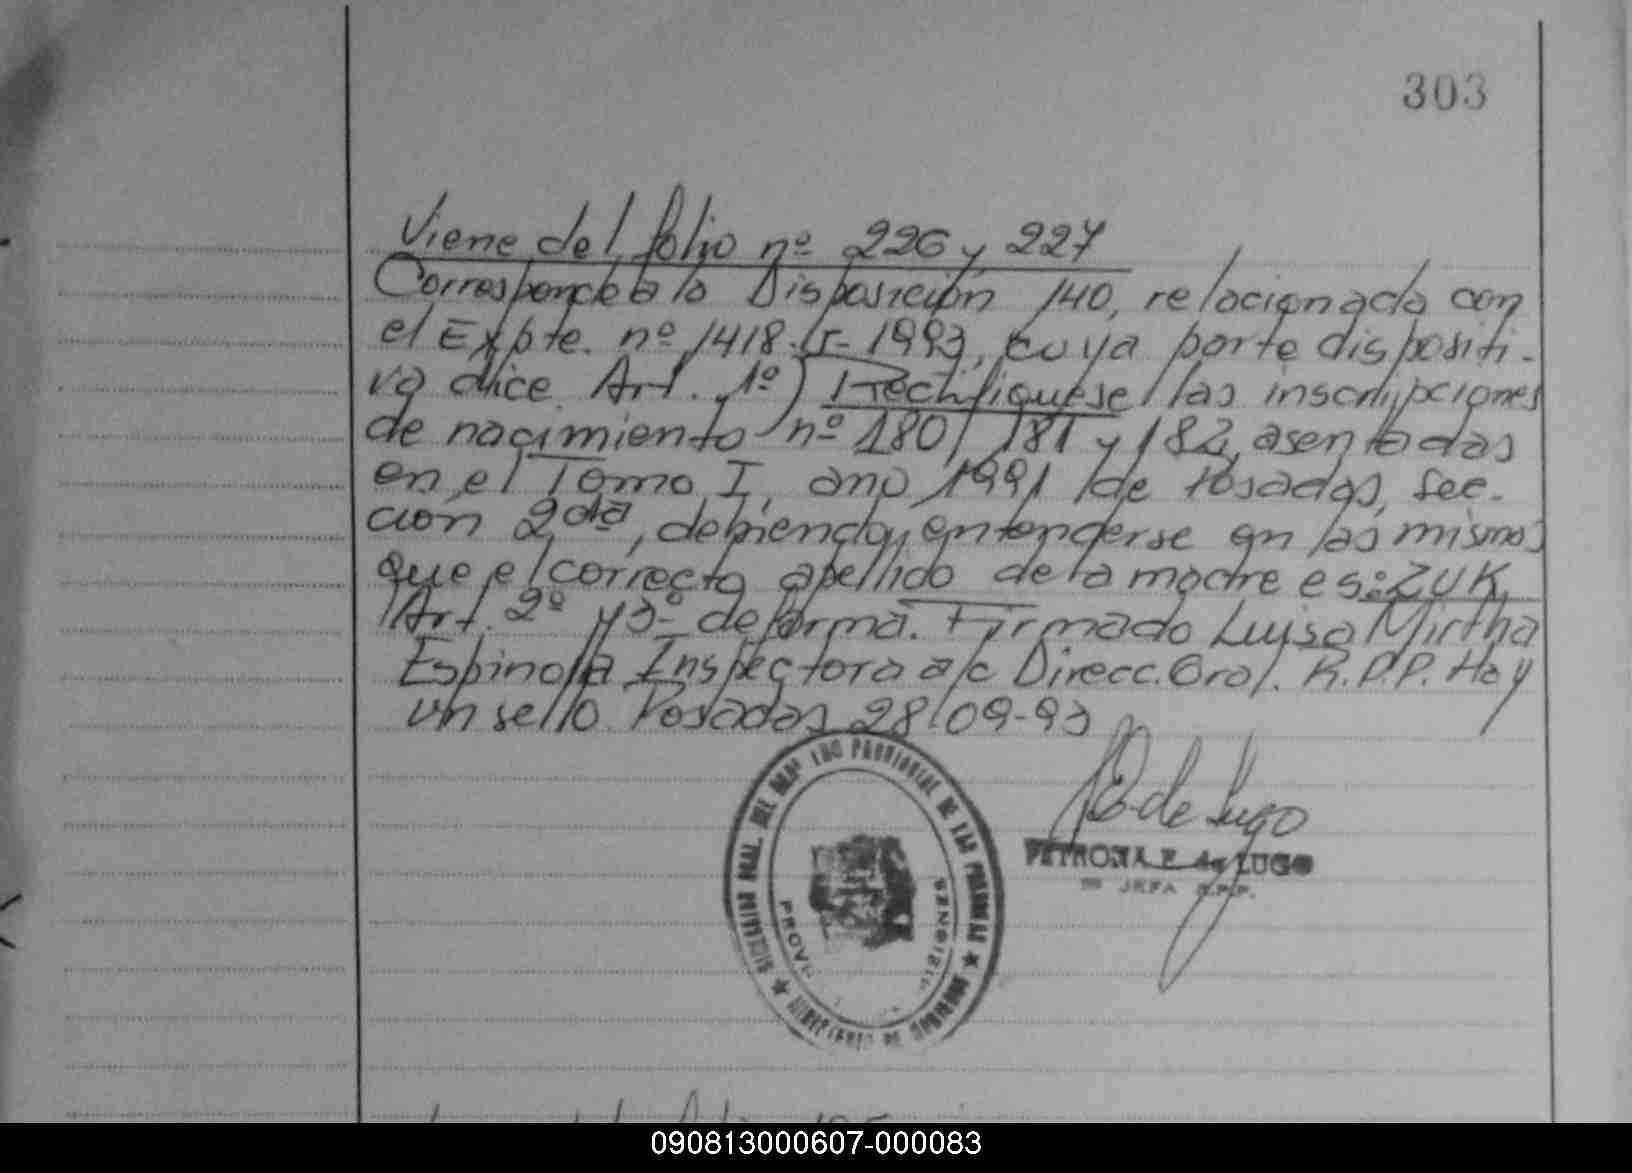 303
Viene del folio nº 226 y 227
Corresponde a la Disposición 140, relacionada con
el Expte. nº 1418-G-1993, cuya parte dispositi-
va dice Art. 1º) Rectifíquese las inscripciones
de nacimiento nº 180, 181 y 182, asentadas
en el Tomo I, año 1991 de Posadas, Sec-
cion 2da, debiendo entenderse en las mismas
que el correcto apellido de la madre es: ZUK,
Art. 2º y 3º de forma. Firmado Luisa Mirtha
Espinola Inspectora a/c Direcc. Gral. R.P.P. Hay
un sello Posadas 28/09-93
PETRONA E de LUGO
JEFA R.P.P.
DIRECCION GRAL. DEL REGISTRO PROVINCIAL DE LAS PERSONAS
MINISTERIO DE GOBIERNO
PROV. MISIONES
090813000607-000083